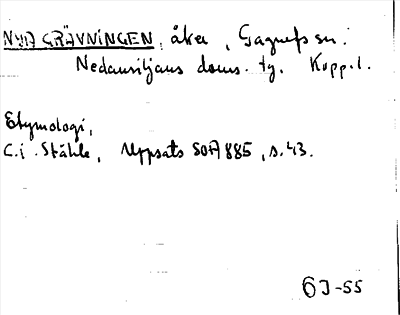 NYA GRÄVNINGEN, åker, Gagnefs sn.
Nedansiljans doms. tg. Kopp. l.
Etymologi,
C.i. Ståhle, Uppsats SOFI 885, s. 43.
63-55